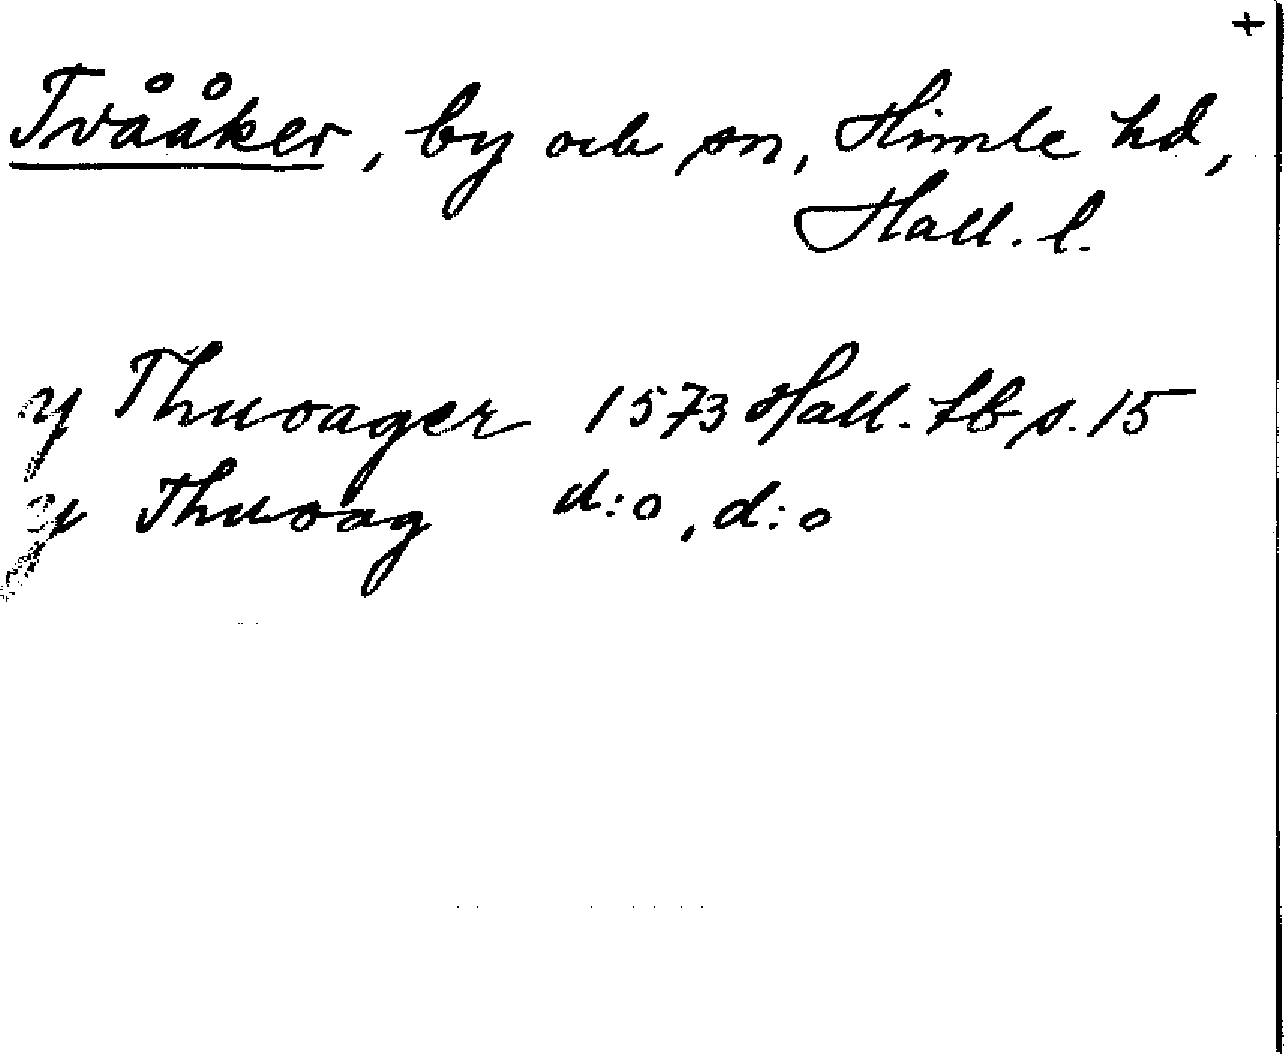 +
Tvååker, by och sn, Himle hd,
Hall. l.
y Thuoager 1573 Hall. tb s. 15
y Thuoag d:o, d:o